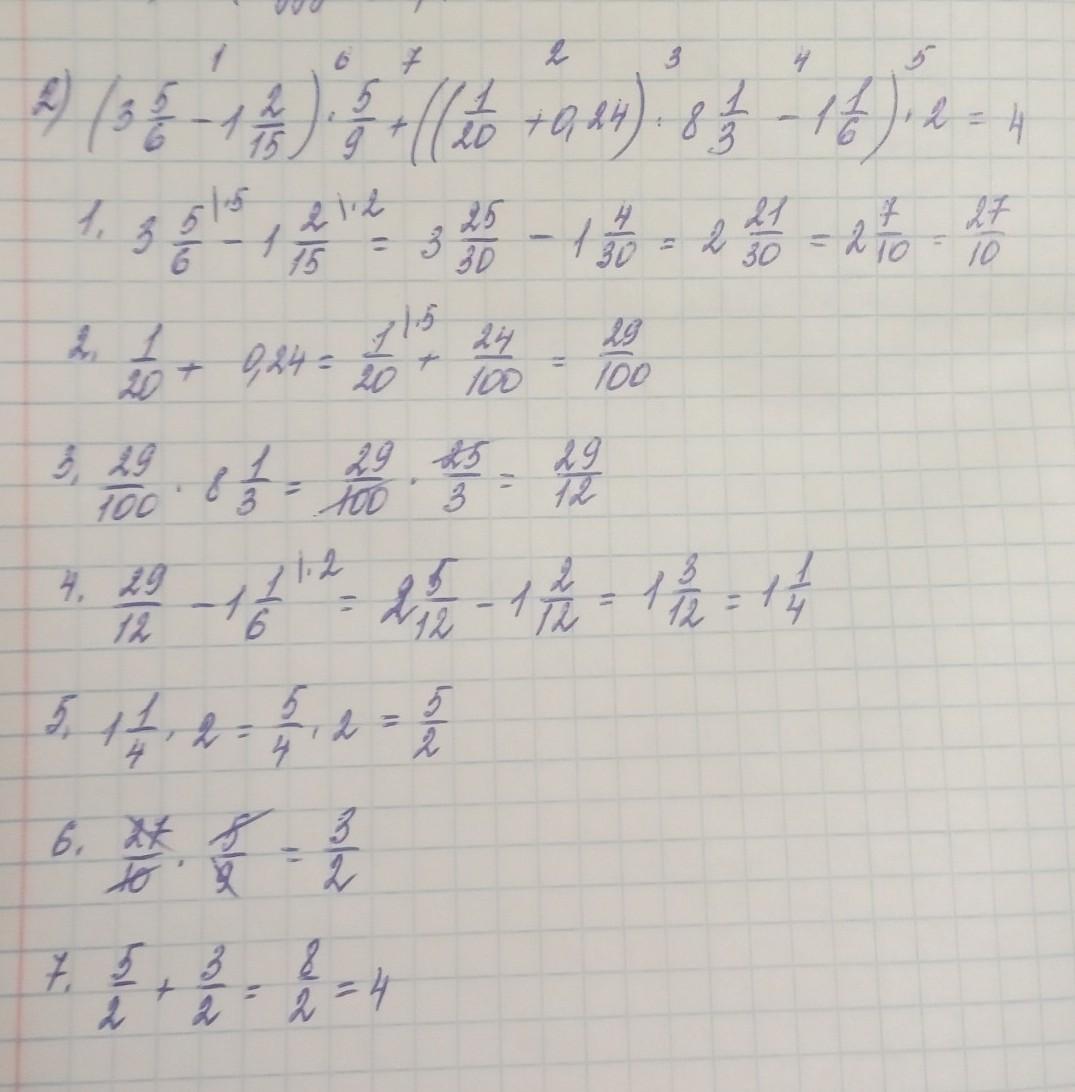 1 6 7 2 3 4 5
2) (3 5/6 - 1 2/15) · 5/9 + ((1/20 + 0,24) · 8 1/3 - 1 1/6) · 2 = 4
1. 3 5/6 |·5 - 1 2/15 |·2 = 3 25/30 - 1 4/30 = 2 21/30 = 2 7/10 = 27/10
2. 1/20 + 0,24 = 1/20 |·5 + 24/100 = 29/100
3. 29/100 · 8 1/3 = 29/100 · 25/3 = 29/12
4. 29/12 - 1 1/6 |·2 = 2 5/12 - 1 2/12 = 1 3/12 = 1 1/4
5. 1 1/4 · 2 = 5/4 · 2 = 5/2
6. 27/10 · 5/9 = 3/2
7. 5/2 + 3/2 = 8/2 = 4